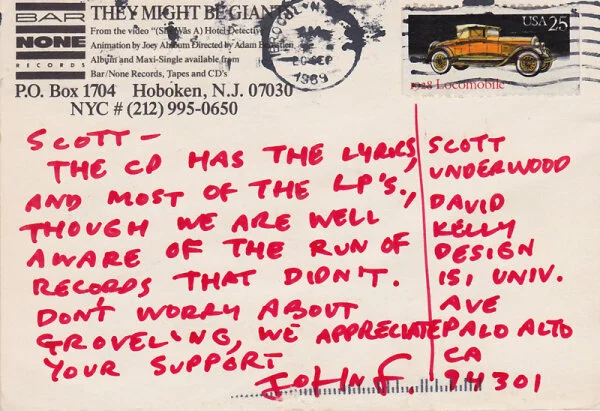 BAR
NONE
RECORDS
THEY MIGHT BE GIANTS
From the video "(She Was A) Hotel Detective"
Animation by Joey Ahlbum Directed by Adam Bernstein
Album and Maxi-Single available from
Bar/None Records, Tapes and CD's
P.O. Box 1704 Hoboken, N.J. 07030
NYC # (212) 995-0650
20 SEP
1989
USA 25
1928 Locomobile
SCOTT—
THE CD HAS THE LYRICS,
AND MOST OF THE LP'S,
THOUGH WE ARE WELL
AWARE OF THE RUN OF
RECORDS THAT DIDN'T.
DON'T WORRY ABOUT
GROVELING, WE APPRECIATE
YOUR SUPPORT
JOHN F.
SCOTT
UNDERWOOD
DAVID
KELLY
DESIGN
151 UNIV.
AVE
PALO ALTO
CA
94301